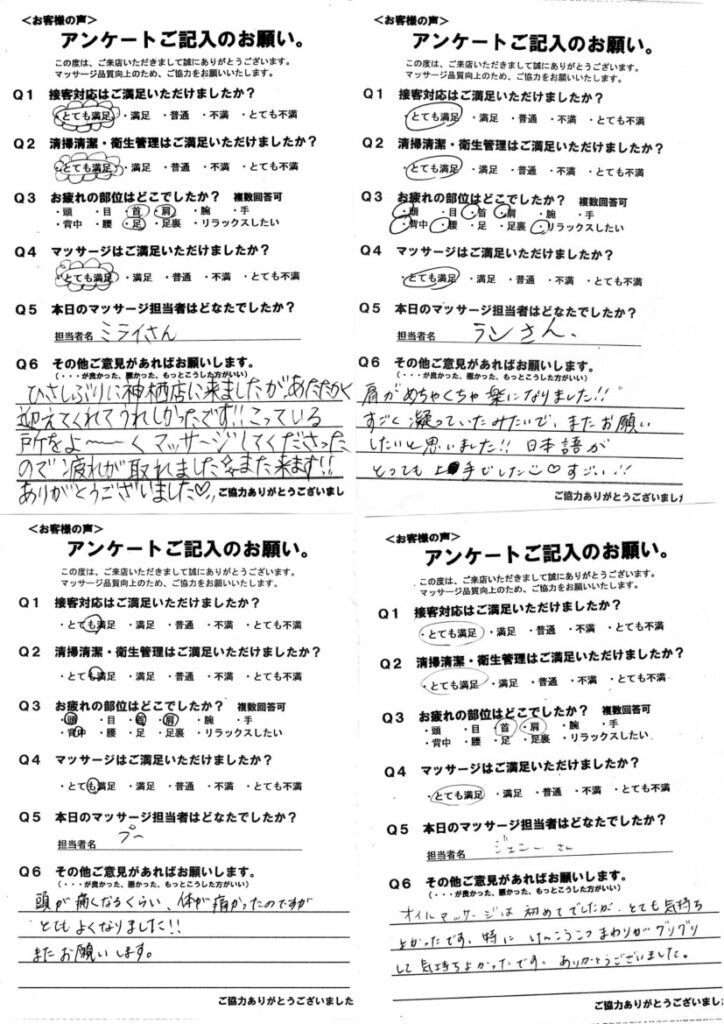 ＜お客様の声＞
アンケートご記入のお願い。
この度は、ご来店いただきまして誠にありがとうございます。
マッサージ品質向上のため、ご協力をお願いいたします。
Q1 接客対応はご満足いただけましたか？
・とても満足 ・満足 ・普通 ・不満 ・とても不満
Q2 清掃清潔・衛生管理はご満足いただけましたか？
・とても満足 ・満足 ・普通 ・不満 ・とても不満
Q3 お疲れの部位はどこでしたか？ 複数回答可
・頭 ・目 ・首 ・肩 ・腕 ・手
・背中 ・腰 ・足 ・足裏 ・リラックスしたい
Q4 マッサージはご満足いただけましたか？
・とても満足 ・満足 ・普通 ・不満 ・とても不満
Q5 本日のマッサージ担当者はどなたでしたか？
担当者名 ミライさん
Q6 その他ご意見があればお願いします。
（・・・が良かった、悪かった、もっとこうした方がいい）
ひさしぶりに神栖店に来ましたがあたたかく
迎えてくれてうれしかったです!!こっている
所をよ〜〜くマッサージしてくださった
ので疲れが取れました また来ます!!
ありがとうございました♡
ご協力ありがとうございまし
＜お客様の声＞
アンケートご記入のお願い。
この度は、ご来店いただきまして誠にありがとうございます。
マッサージ品質向上のため、ご協力をお願いいたします。
Q1 接客対応はご満足いただけましたか？
・とても満足 ・満足 ・普通 ・不満 ・とても不満
Q2 清掃清潔・衛生管理はご満足いただけましたか？
・とても満足 ・満足 ・普通 ・不満 ・とても不満
Q3 お疲れの部位はどこでしたか？ 複数回答可
・頭 ・目 ・首 ・肩 ・腕 ・手
・背中 ・腰 ・足 ・足裏 ・リラックスしたい
Q4 マッサージはご満足いただけましたか？
・とても満足 ・満足 ・普通 ・不満 ・とても不満
Q5 本日のマッサージ担当者はどなたでしたか？
担当者名 ランさん、
Q6 その他ご意見があればお願いします。
（・・・が良かった、悪かった、もっとこうした方がいい）
肩がめちゃくちゃ楽になりました!!
すごく凝っていたみたいで、またお願い
したいと思いました!! 日本語が
とっても上手でした♡すごい!!
ご協力ありがとうございまし
＜お客様の声＞
アンケートご記入のお願い。
この度は、ご来店いただきまして誠にありがとうございます。
マッサージ品質向上のため、ご協力をお願いいたします。
Q1 接客対応はご満足いただけましたか？
・とても満足 ・満足 ・普通 ・不満 ・とても不満
Q2 清掃清潔・衛生管理はご満足いただけましたか？
・とても満足 ・満足 ・普通 ・不満 ・とても不満
Q3 お疲れの部位はどこでしたか？ 複数回答可
・頭 ・目 ・首 ・肩 ・腕 ・手
・背中 ・腰 ・足 ・足裏 ・リラックスしたい
Q4 マッサージはご満足いただけましたか？
・とても満足 ・満足 ・普通 ・不満 ・とても不満
Q5 本日のマッサージ担当者はどなたでしたか？
担当者名 プー
Q6 その他ご意見があればお願いします。
（・・・が良かった、悪かった、もっとこうした方がいい）
頭が痛くなるくらい、体が痛かったのですが
とてもよくなりました!!
またお願いします。
ご協力ありがとうございました
＜お客様の声＞
アンケートご記入のお願い。
この度は、ご来店いただきまして誠にありがとうございます。
マッサージ品質向上のため、ご協力をお願いいたします。
Q1 接客対応はご満足いただけましたか？
・とても満足 ・満足 ・普通 ・不満 ・とても不満
Q2 清掃清潔・衛生管理はご満足いただけましたか？
・とても満足 ・満足 ・普通 ・不満 ・とても不満
Q3 お疲れの部位はどこでしたか？ 複数回答可
・頭 ・目 ・首 ・肩 ・腕 ・手
・背中 ・腰 ・足 ・足裏 ・リラックスしたい
Q4 マッサージはご満足いただけましたか？
・とても満足 ・満足 ・普通 ・不満 ・とても不満
Q5 本日のマッサージ担当者はどなたでしたか？
担当者名 ジェニーさん
Q6 その他ご意見があればお願いします。
（・・・が良かった、悪かった、もっとこうした方がいい）
オイルマッサージは初めてでしたが、とても気持ち
よかったです。特にけんこうこつまわりがグリグリ
して気持ちよかったです。ありがとうございました。
ご協力ありがとうございまし